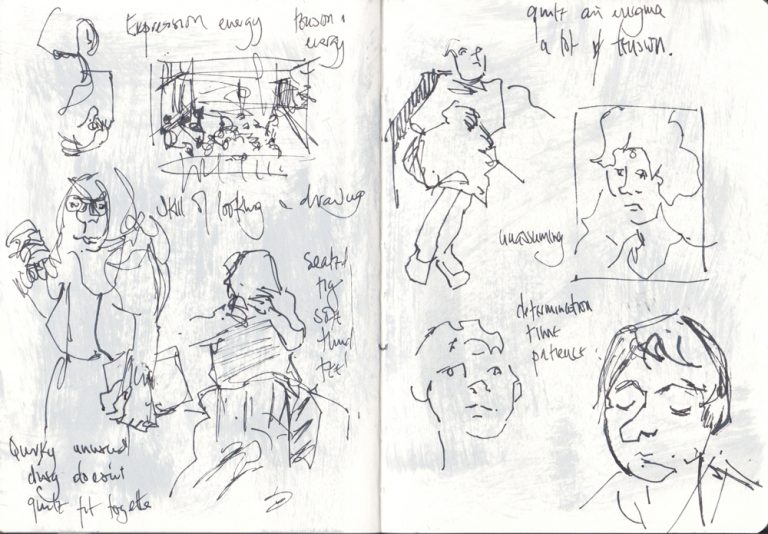 Expression energy
tension &
energy
skill of looking & drawing
seated
fig
soft
Quirky unusual
doesn't
quite fit together
quite an enigma
a lot of tension.
unassuming
determination
time
patience.